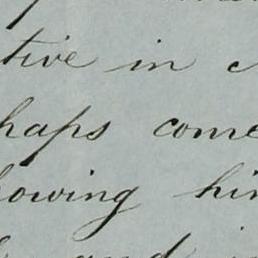 tive in
haps come
howing him
and